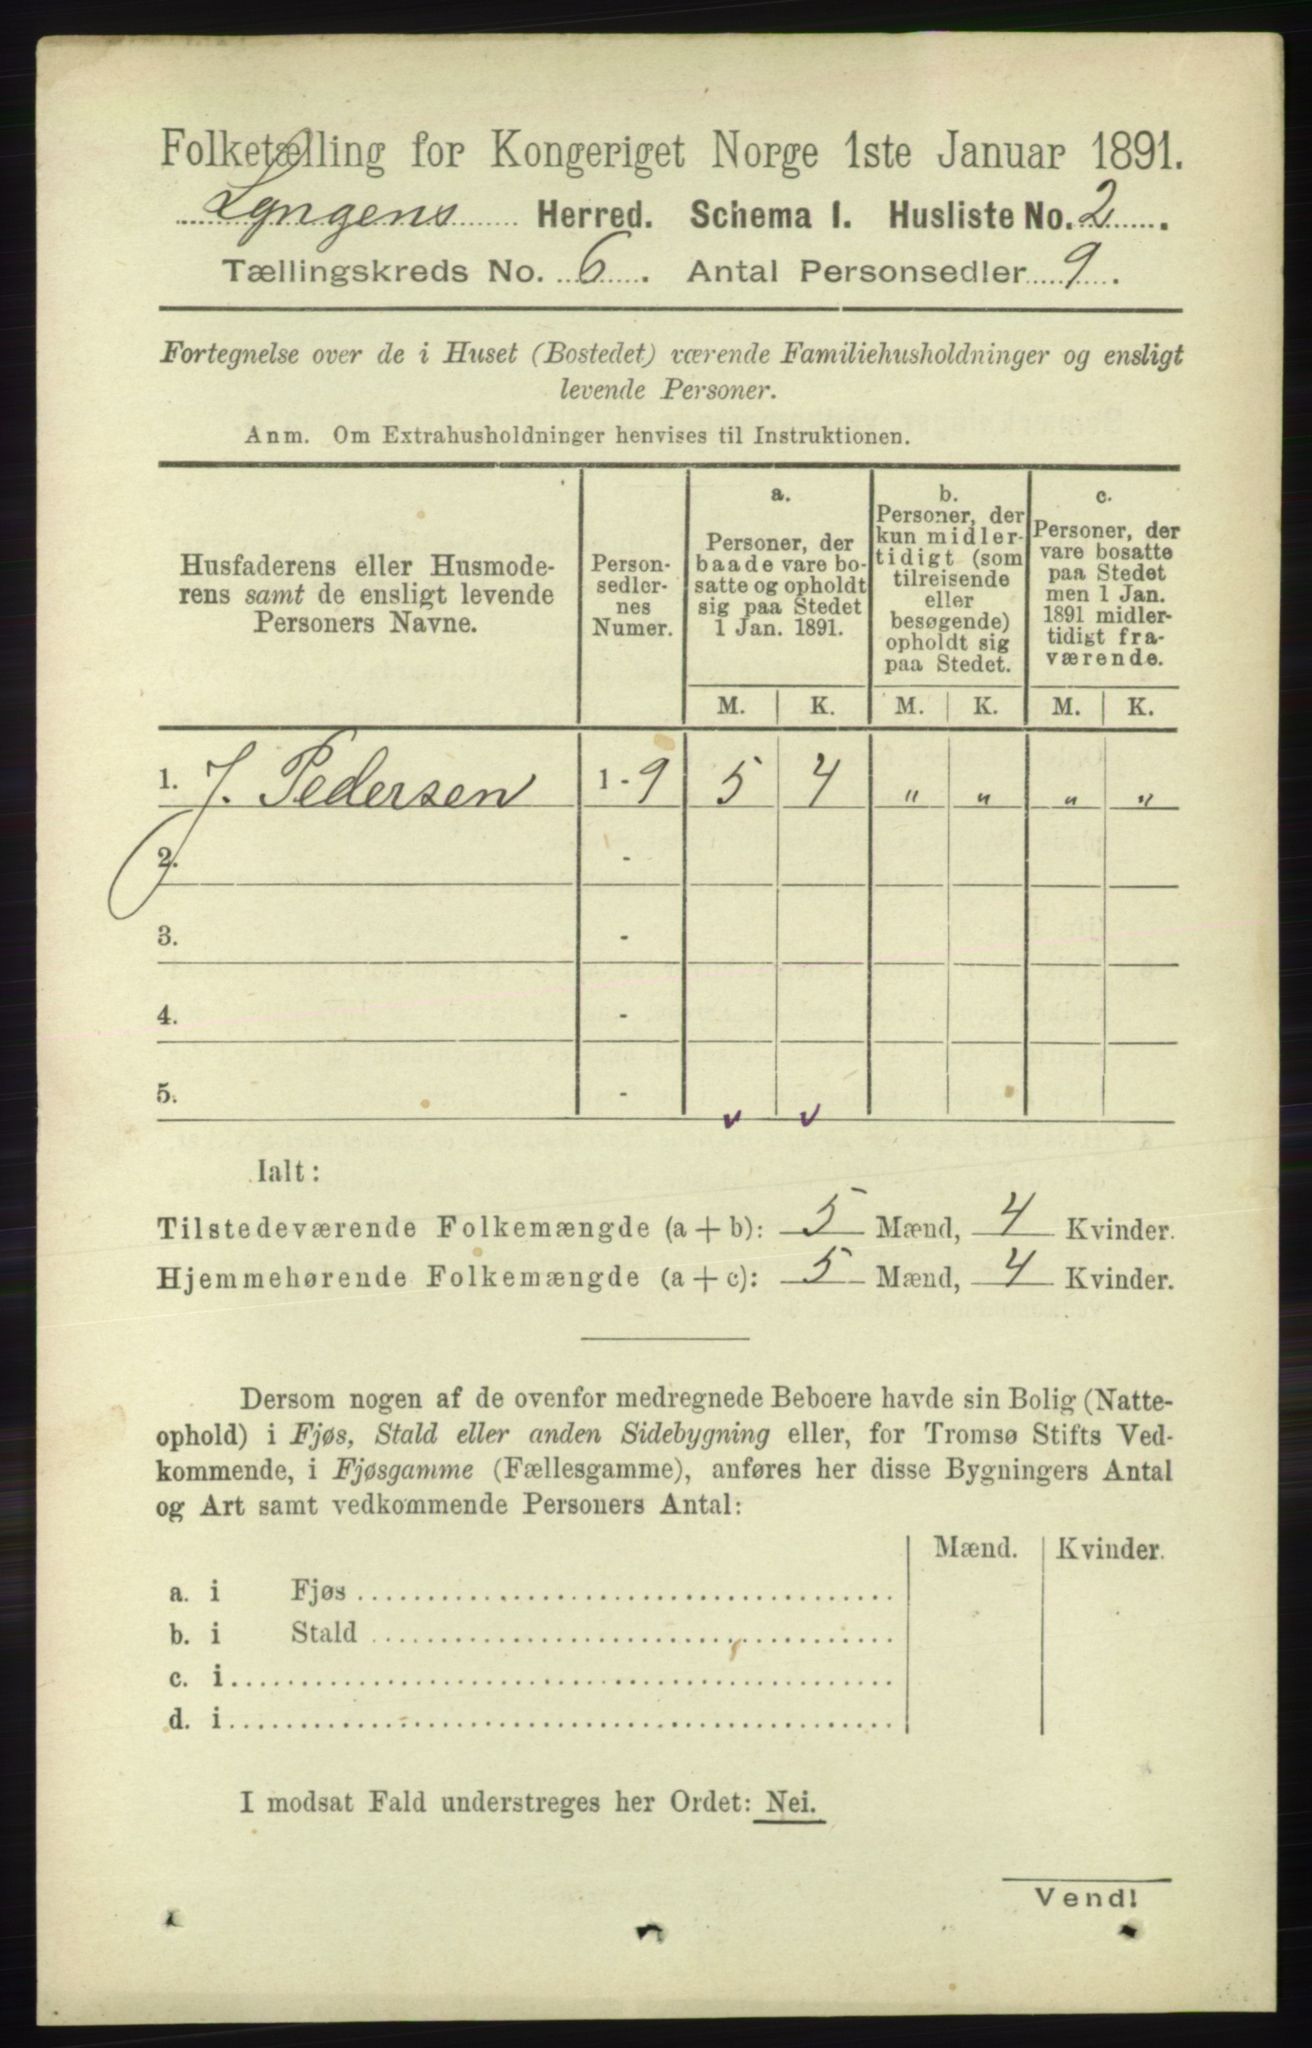 Folketælling for Kongeriget Norge 1ste Januar 1891.
Lyngens Herred. Schema I. Husliste No. 2.
Tællingskreds No. 6. Antal Personsedler 9.
Fortegnelse over de i Huset (Bostedet) værende Familiehusholdninger og ensligt
levende Personer.
Anm. Om Extrahusholdninger henvises til Instruktionen.
Husfaderens eller Husmode-
rens samt de ensligt levende
Personers Navne.
Person-
sedler-
nes
Numer.
a.
Personer, der
baade vare bo-
satte og opholdt
sig paa Stedet
1 Jan. 1891.
b.
Personer, der
kun midler-
tidigt (som
tilreisende
eller
besøgende)
opholdt sig
paa Stedet.
c.
Personer, der
vare bosatte
paa Stedet
men 1 Jan.
1891 midler-
tidigt fra-
værende.
M. K. M. K. M. K.
1. J. Pedersen 1-9 5 4 " " " "
2. -
3. -
4. -
5. -
Ialt:
Tilstedeværende Folkemængde (a + b): 5 Mænd, 4 Kvinder.
Hjemmehørende Folkemængde (a + c): 5 Mænd, 4 Kvinder.
Dersom nogen af de ovenfor medregnede Beboere havde sin Bolig (Natte-
ophold) i Fjøs, Stald eller anden Sidebygning eller, for Tromsø Stifts Ved-
kommende, i Fjøsgamme (Fællesgamme), anføres her disse Bygningers Antal
og Art samt vedkommende Personers Antal:
Mænd. Kvinder.
a. i Fjøs
b. i Stald
c. i
d. i
I modsat Fald understreges her Ordet: Nei.
Vend!